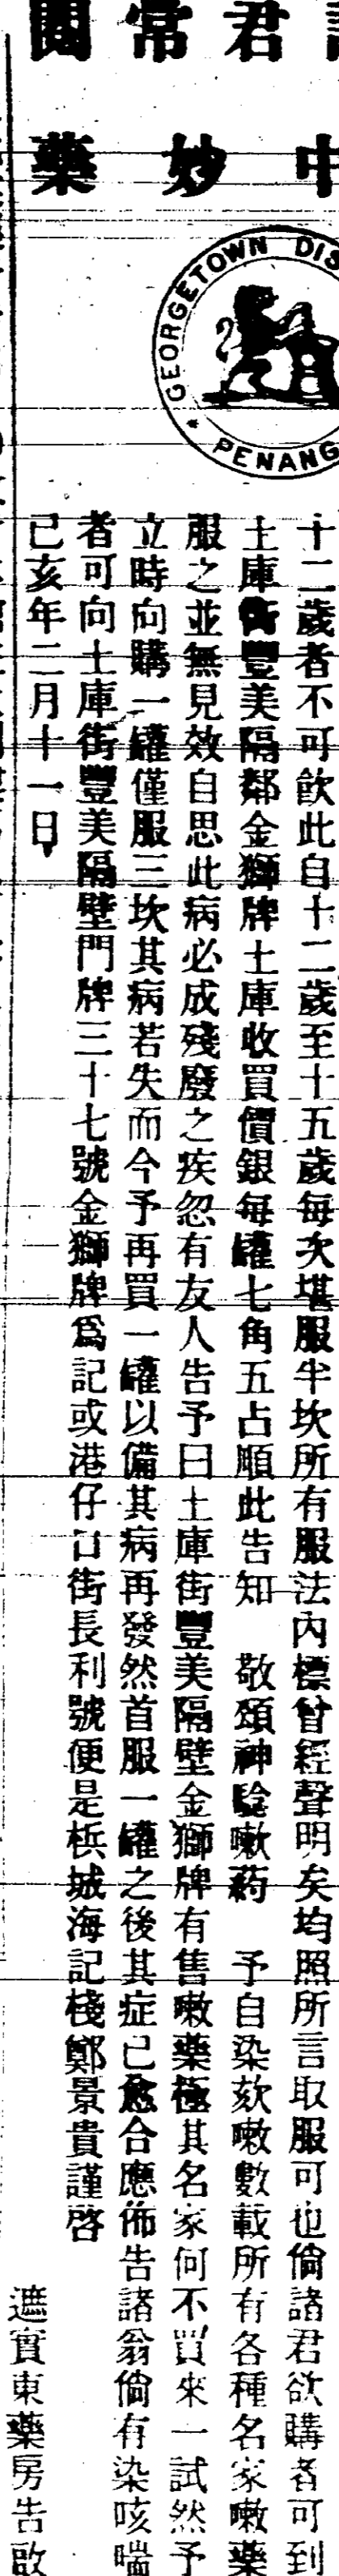 君常閱
中妙藥
GEORGETOWN DIS
PENANG
十二歲者不可飲此自十二歲至十五歲每次堪服半坎所有服法內標曾經聲明矣均照所言取服可也倘諸君欲購者可到
土庫街豐美隔鄰金獅牌土庫收買價銀每罐七角五占順此告知 敬頌神騐嗽葯 予自染欬嗽數載所有各種名家嗽藥
服之並無見效自思此病必成殘廢之疾忽有友人告予曰土庫街豐美隔壁金獅牌有售嗽藥極其名家何不買來一試然予
立時向購一罐僅服三坎其病若失而今予再買一罐以備其病再發然首服一罐之後其症已愈合應佈告諸翁倘有染咳喘
者可向土庫街豐美隔壁門牌三十七號金獅牌爲記或港仔口街長利號便是梹城海記棧鄭景貴謹啓
己亥年二月十一日
遮實東藥房告啟